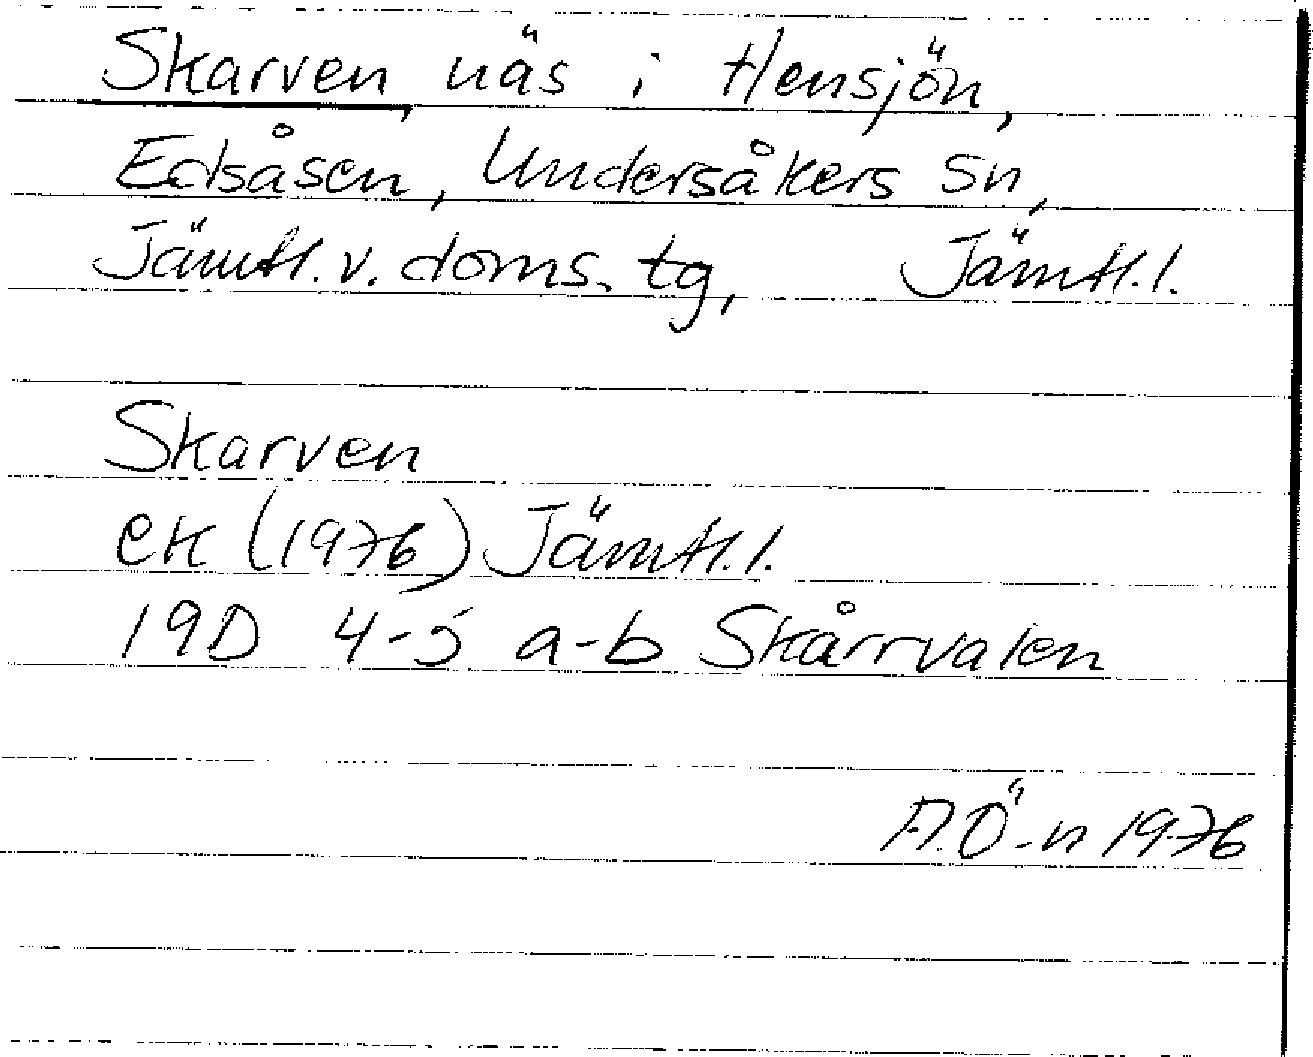 Skarven, näs i Hensjön,
Edsåsen, Undersåkers sn,
Jämtl. v. doms. tg, Jämtl. l.
Skarven
ek (1976) Jämtl. l.
19D 4-5 a-b Skårrvalen
A.Ö-n 1976